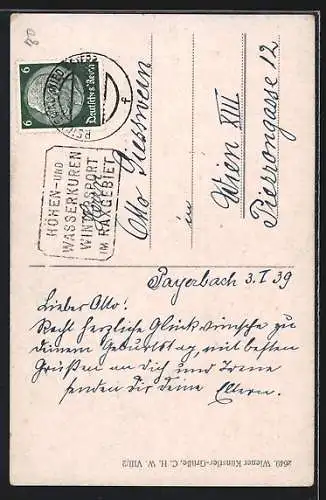 80
6 6
Deutsches Reich
HÖHEN- UND
WASSERKUREN
WINTERSPORT
IM RAXGEBIET
Otto Giesswein
in
Wien XIII
Pierrongasse 12
Payerbach 3.I 39
Lieber Otto!
Recht herzliche Glückwünsche zu
deinem Geburtstag, mit besten
Grüßen an dich und Irene
senden dir deine Eltern.
2640. Wiener Künstler-Grüße, C. H. W. VIII/2